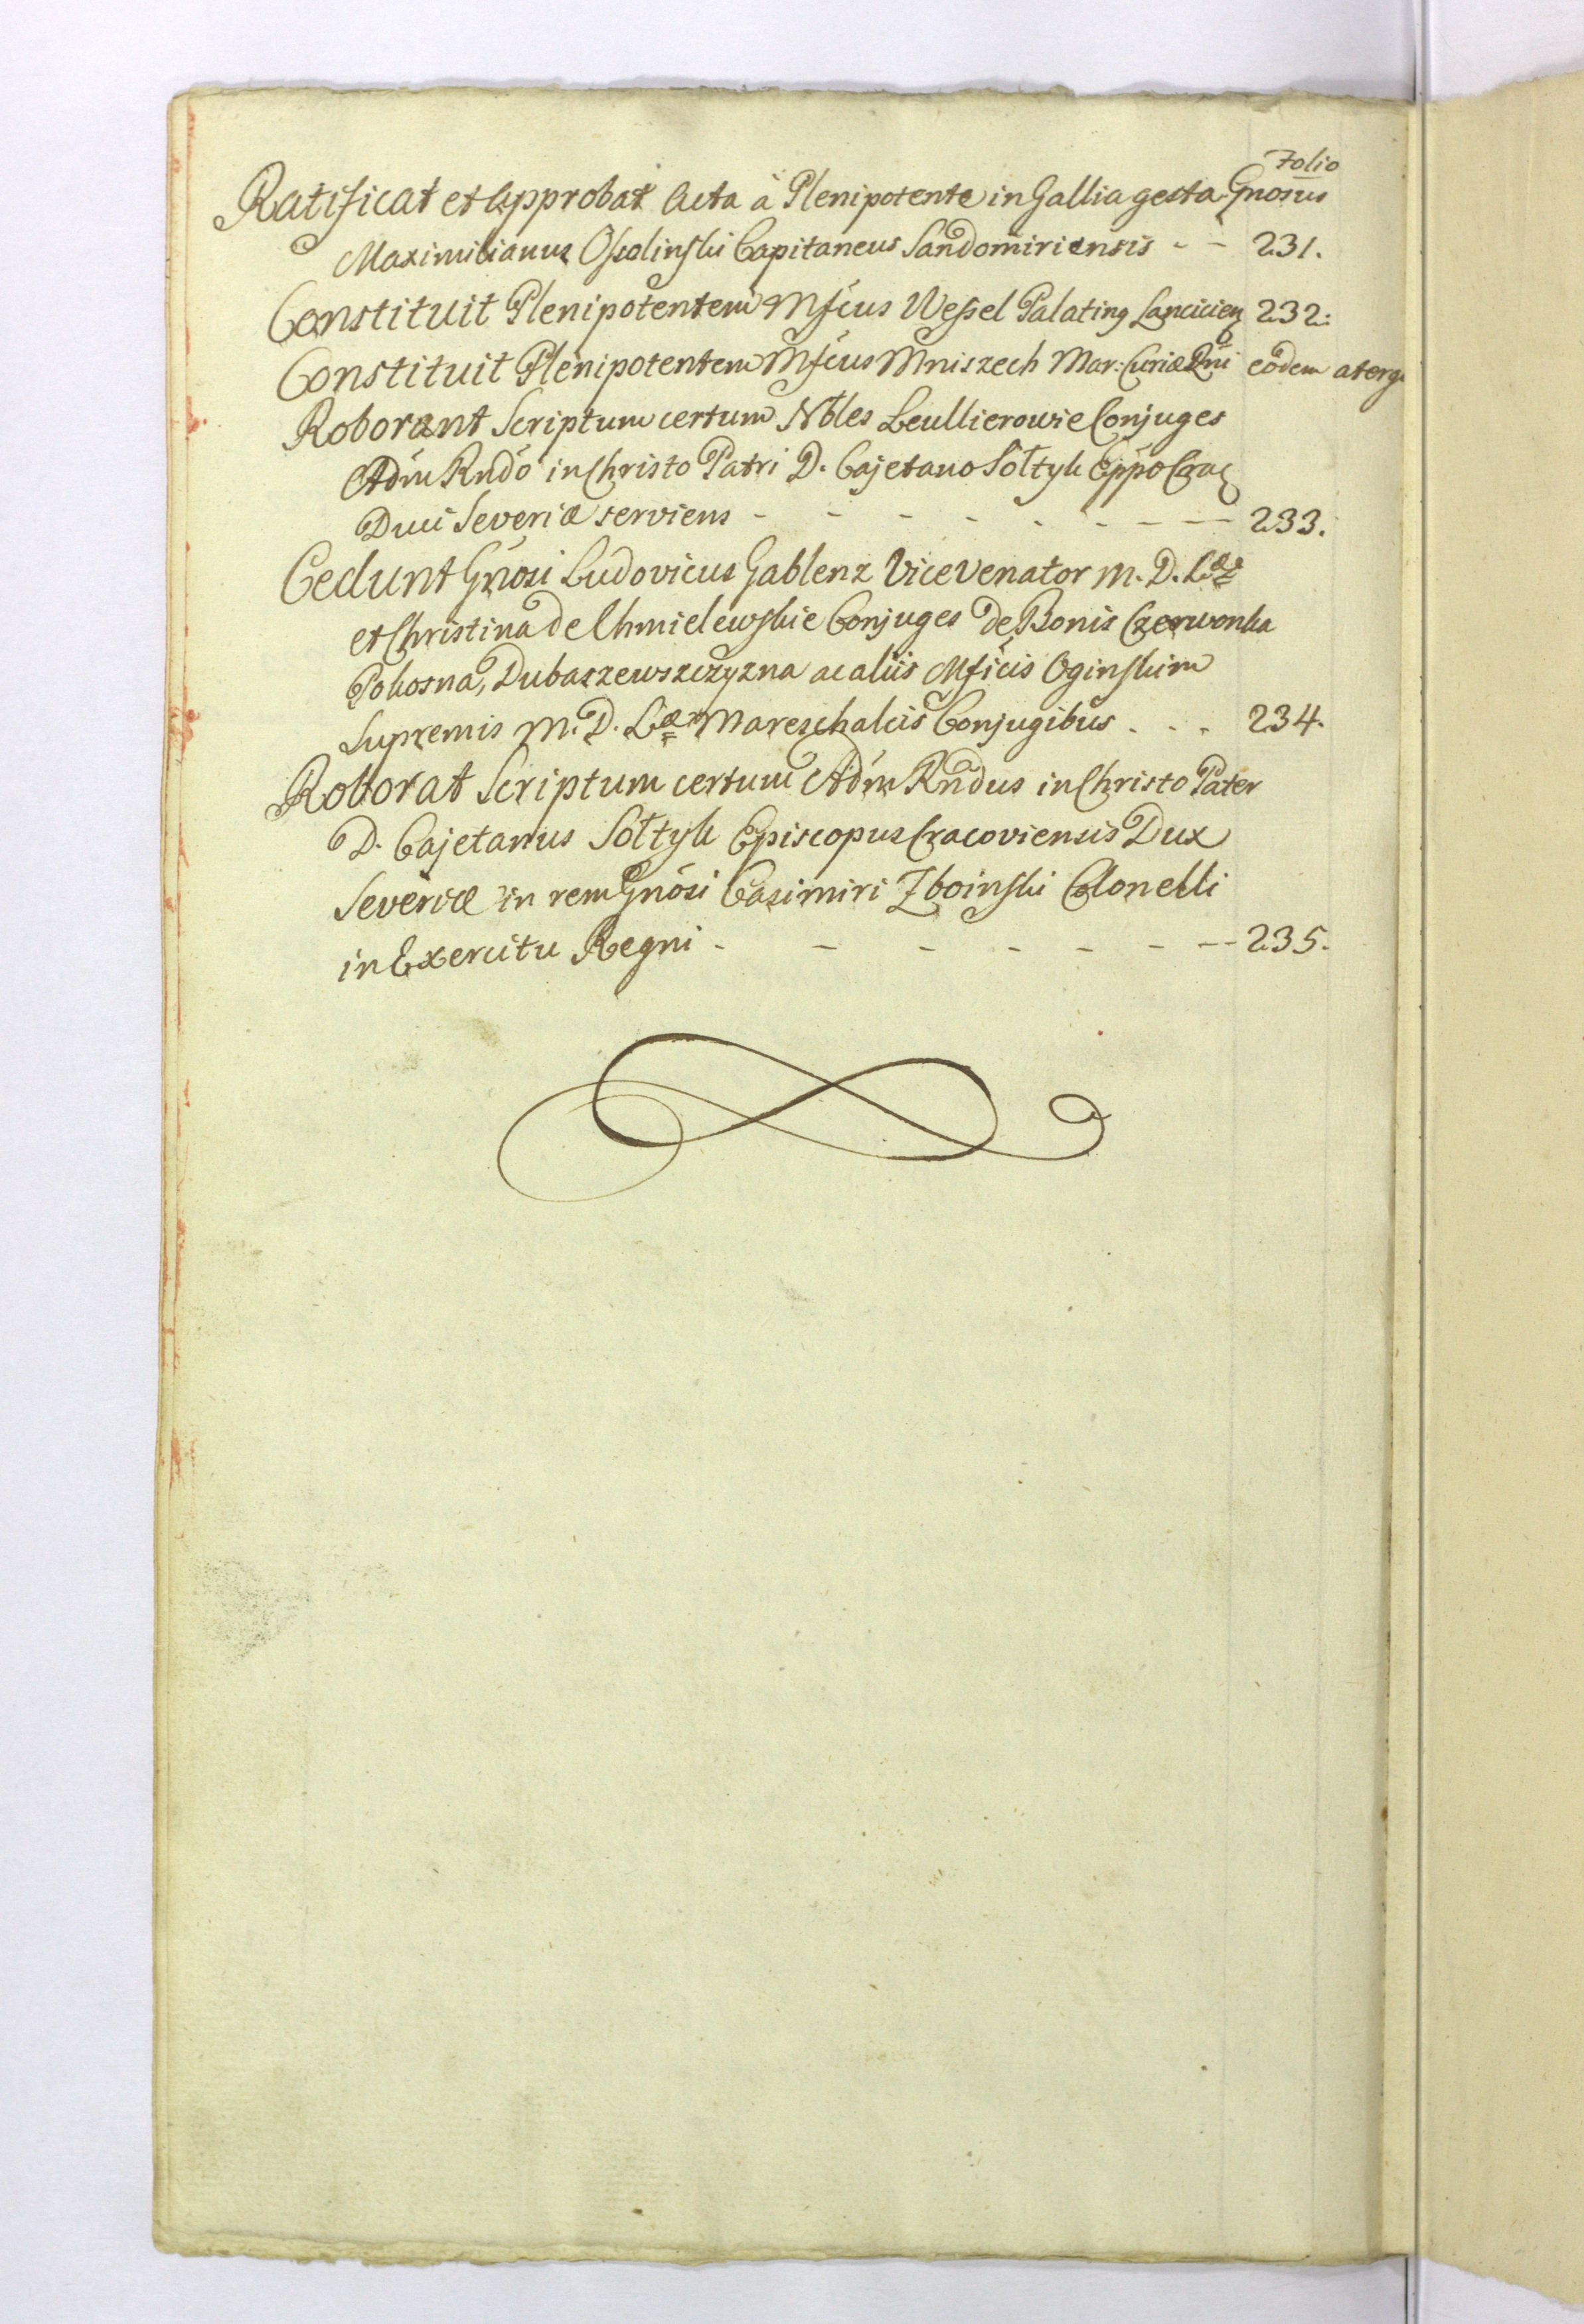 Folio
Ratificat et Approbat Acta à Plenipotente in Gallia gesta Gnosus
Maximilianus Ossolinski Capitaneus Sandomiriensis - - 231.
Constituit Plenipotentem Mfcus Wessel Palatinq Lancicien 232.
Constituit Plenipotentem Mfcus Mniszech Mar: Curiæ Rni eodem a terg
Roborant Scriptum certum Nbles Leullierowie Conjuges
Adm Rndo in Christo Patri D. Cajetano Sołtyk Eppo Crac
Duci Severiæ serviens - - - - - - - - 233.
Cedunt Gnosi Ludovicus Gablenz Vice Venator M. D. Læ
et Christina de Chmielewskie Conjuges de Bonis Czerwonka
Pohosna, Dubaszewszczyzna ac aliis Mficis Oginskim
Supremis M. D. Læ Mareschalcis Conjugibus . . . 234.
Roborat Scriptum certum Adm Rndus in Christo Pater
D. Cajetanus Sołtyk Episcopus Cracoviensis Dux
Severiæ in rem Gnosi Casimiri Zboinski Colonelli
in Exercitu Regni - - - - - - - - 235.